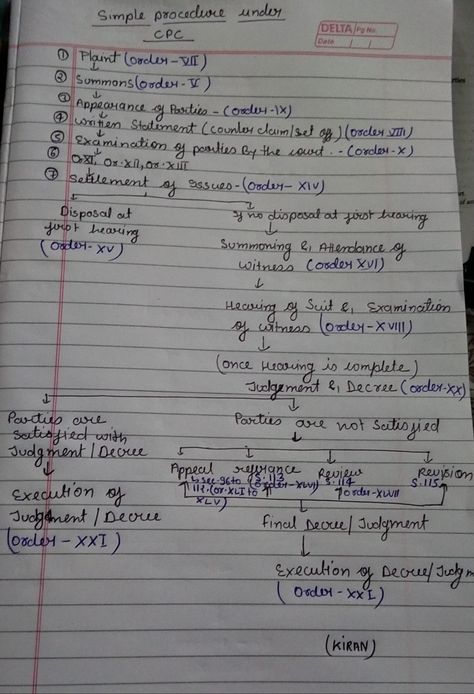 Simple procedure under
CPC
DELTA Pg No.
Date / /
① Plaint (order-VII)
② Summons (order-V)
③ Appearance of Parties - (order-IX)
④ Written Statement (counter claim/set of) (order VIII)
⑤ Examination of parties By the court. - (order-X)
⑥ Or XI, Or. XII, Or. XIII
⑦ Settlement of Issues - (order-XIV)
Disposal at
first hearing
(order-XV)
If no disposal at first hearing
Summoning & Attendance of
witness (order XVI)
Hearing of Suit & Examination
of witness (order-XVIII)
(once Hearing is complete)
Judgement & Decree (order-XX)
Parties are
satisfied with
Judgment / Decree
Execution of
Judgment / Decree
(order-XXI)
Parties are not satisfied
Appeal
sec-96 to
(or-XLI to
XLV)
refrance
S. 113
(order-XLVI)
Review
S. 114
order-XLVII
Revision
S. 115
Final Decree / Judgment
Execution of Decree/Judgm
(order-XXI)
(KIRAN)